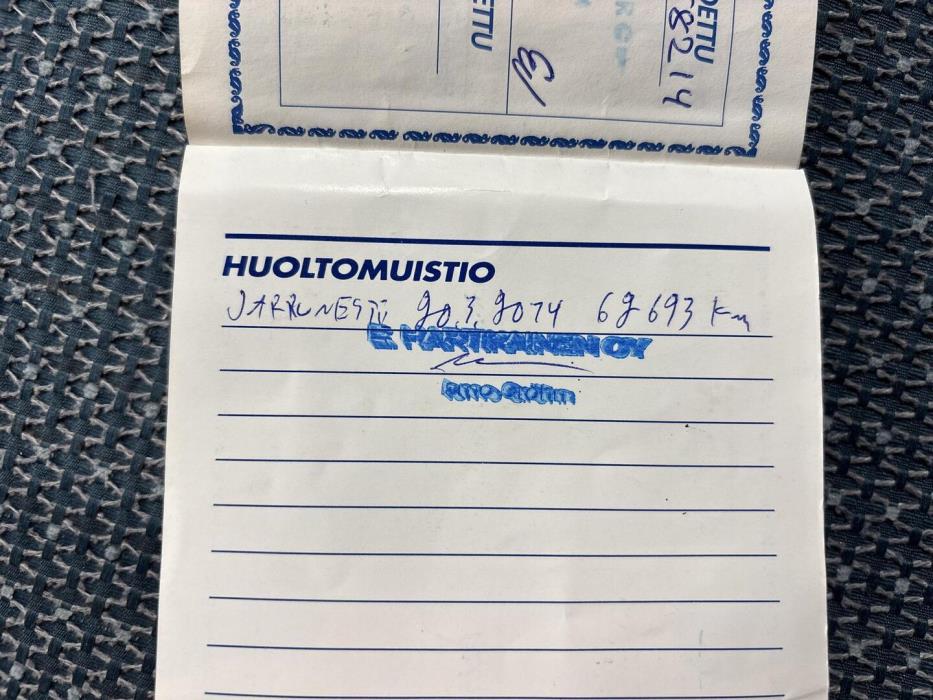 OETTU
58214
ETTU
HUOLTOMUISTIO
JARRUNESTE 20.3.2014 62 693 km
E. HARTIKAINEN OY